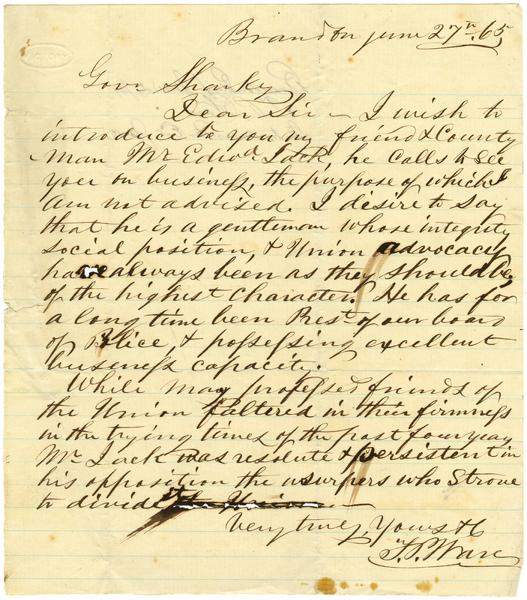 Brandon June 27th 65
Govr Sharkey
Dear Sir — I wish to
introduce to you my friend & County
man Mr Edwd Jack, he calls to see
you on business, the purpose of which I
am not advised. I desire to say
that he is a gentleman whose integrity
social position, & Union advocacy
have always been as they should be,
of the highest character. He has for
a long time been Prest. of our board
of Police, & possessing excellent
business capacity.
While many professed friends of
the Union faltered in their firmness
in the trying times of the past four years
Mr Jack was resolute & persistent in
his opposition the usurpers who strove
to divide the Union —
Very truly Yours &c